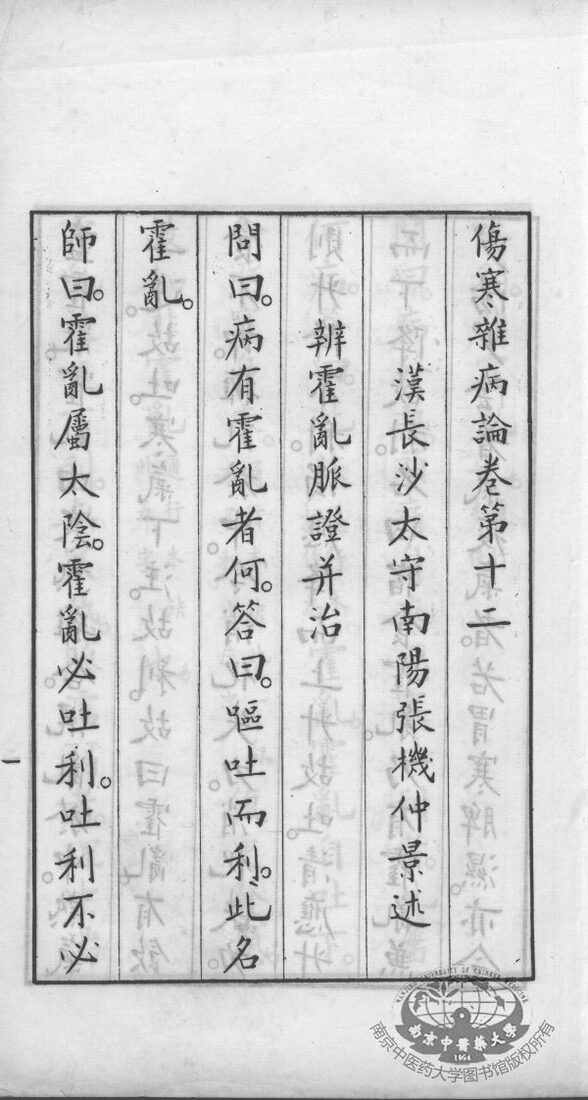 傷寒雜病論卷第十二
漢長沙太守南陽張機仲景述
辨霍亂脈證并治
問曰。病有霍亂者何。答曰。嘔吐而利。此名
霍亂。
師曰。霍亂屬太陰。霍亂必吐利。吐利不必
一
NANJING UNIVERSITY OF CHINESE MEDICINE
南京中醫藥大學
1954
南京中医药大学图书馆版权所有